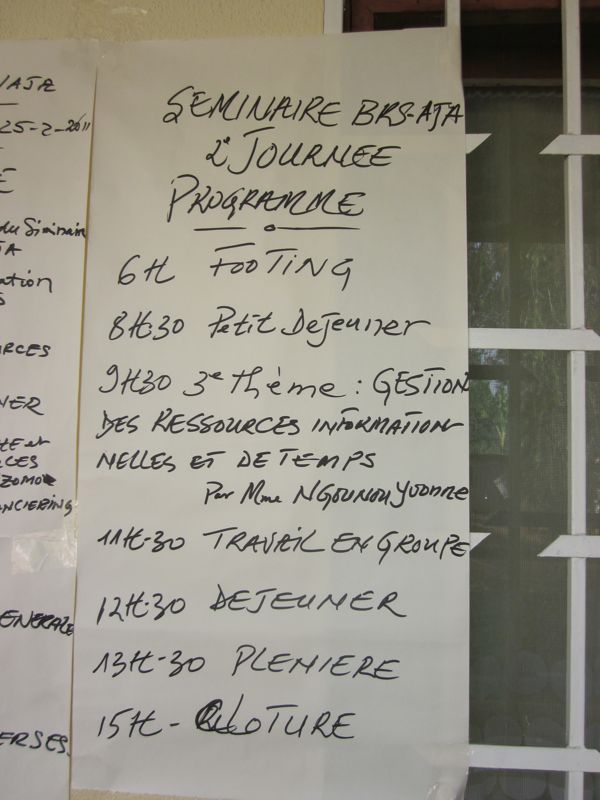 25-2-2011
du Séminaire
SEMINAIRE BRS-AJA
2e JOURNEE
PROGRAMME
6H FOOTING
8H:30 Petit Dejeuner
9H30 3e thème : GESTION
DES RESSOURCES INFORMATION-
NELLES ET DE TEMPS
Par Mme NGOUNOU Yvonne
11H-30 TRAVAIL EN GROUPE
12H-30 DEJEUNER
13H-30 PLENIERE
15H- CLOTURE